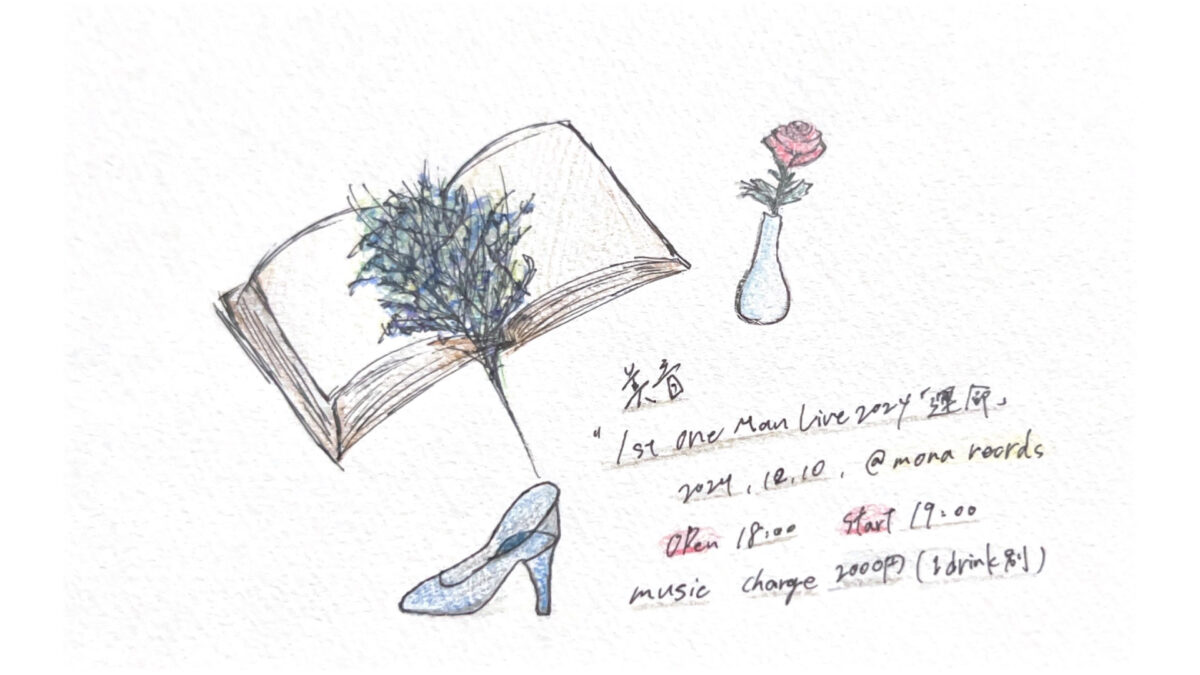 美音
"1st one Man Live 2024「運命」
2024.12.10. @mona records
OPen 18:00 Start 19:00
music charge 2000円(1drink別)